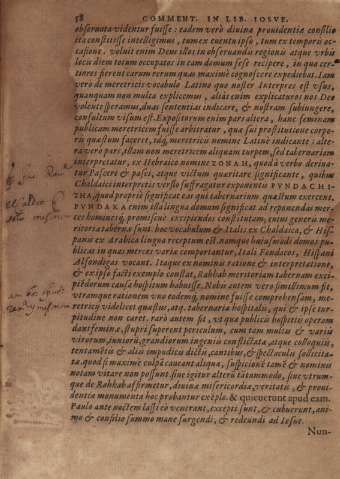 58 COMMENT. IN LIB. IOSVE.
obseruata videntur fuisse: eadem verò diuina prouidentiæ consilio
ita constitisse intelligimus, tum ex euentu ipso, tum ex temporis oc-
casione. voluit enim Deus illos in obseruandis regionis atque vrbis
locis diem totum occupatos in eam domum sese recipere, in qua cer-
tiores fierent earum rerum quas maximè cognoscere expediebat. Iam
verò de meretricis vocabulo Latino quo noster Interpres est vsus,
quanquam non multa explicemus, alias enim explicaturos nos Deo
volente speramus, duas sententias indicare, & nostram subiungere,
consultum visum est. Expositorum enim pars altera, hanc feminam
publicam meretricem fuisse arbitratur, quæ sui prostitutione corpo-
ris quæstum faceret, idque meretricis nomine Latinè indicante: alte-
ra verò pars, illam non meretricem aliquam turpem, sed tabernariam
interpretatur, ex Hebraico nomine ZONAH, quod à verbo deriua-
tur Pascere & pasci, atque victum quæritare significante, quibus
Chaldaici interpretis versio suffragatur exponentis PVNDACHI-
THA, quod propriè significat eas quæ tabernariam quæstum exercent.
PVNDAKA enim illa lingua domum significat ad reponendas mer-
ces hominesque promiscuè excipiendos constitutam, cuius generis me-
ritoria tabernæ sunt. hoc vocabulum & Italis ex Chaldaica, & His-
panis ex Arabica lingua receptum est. nanque huiusmodi domos pu-
blicas in quas merces variæ comportantur, Itali Fondaco, Hispani
Alfondegas vocant. Itaque ex nominis ratione & interpretatione,
& ex ipso facti exemplo constat, Rahhab meritoriam tabernam exci-
piendorum causa hospitum habuisse. Nobis autem vero simillimum fit,
vtramque rationem vno eodemque nomine fuisse comprehensam, me-
retricis videlicet quæstus, atque tabernariæ hospitalis, quæ & ipsa tur-
pitudine non caret. rarò autem fit, vt quæ publicis hospitiis operam
dant feminæ, stupri superent periculum, cum tam multis & variis
virorum, iuniorum, grandiorum ingeniis conflictata, atque colloquiis,
tentamétis & aliis impudicis dictis, cantibus, & spectaculis sollicita-
ta. quod si maximè culpa caueant aliqua, suspicione tamē & nominis
notam vitare non possunt. siue igitur alterū tatummodo, siue vtrum-
que de Rahhab affirmetur, diuina misericordiæ, veritatis, & proui-
dentiæ monumenta hoc probantur exēplo. & quicuerunt apud eam.
Paulo ante noctem lassi eò venerant, excepti sunt, & cubuerunt, ani-
mo & consilio summo mane surgendi, & redeundi ad Iosue.
Nun-